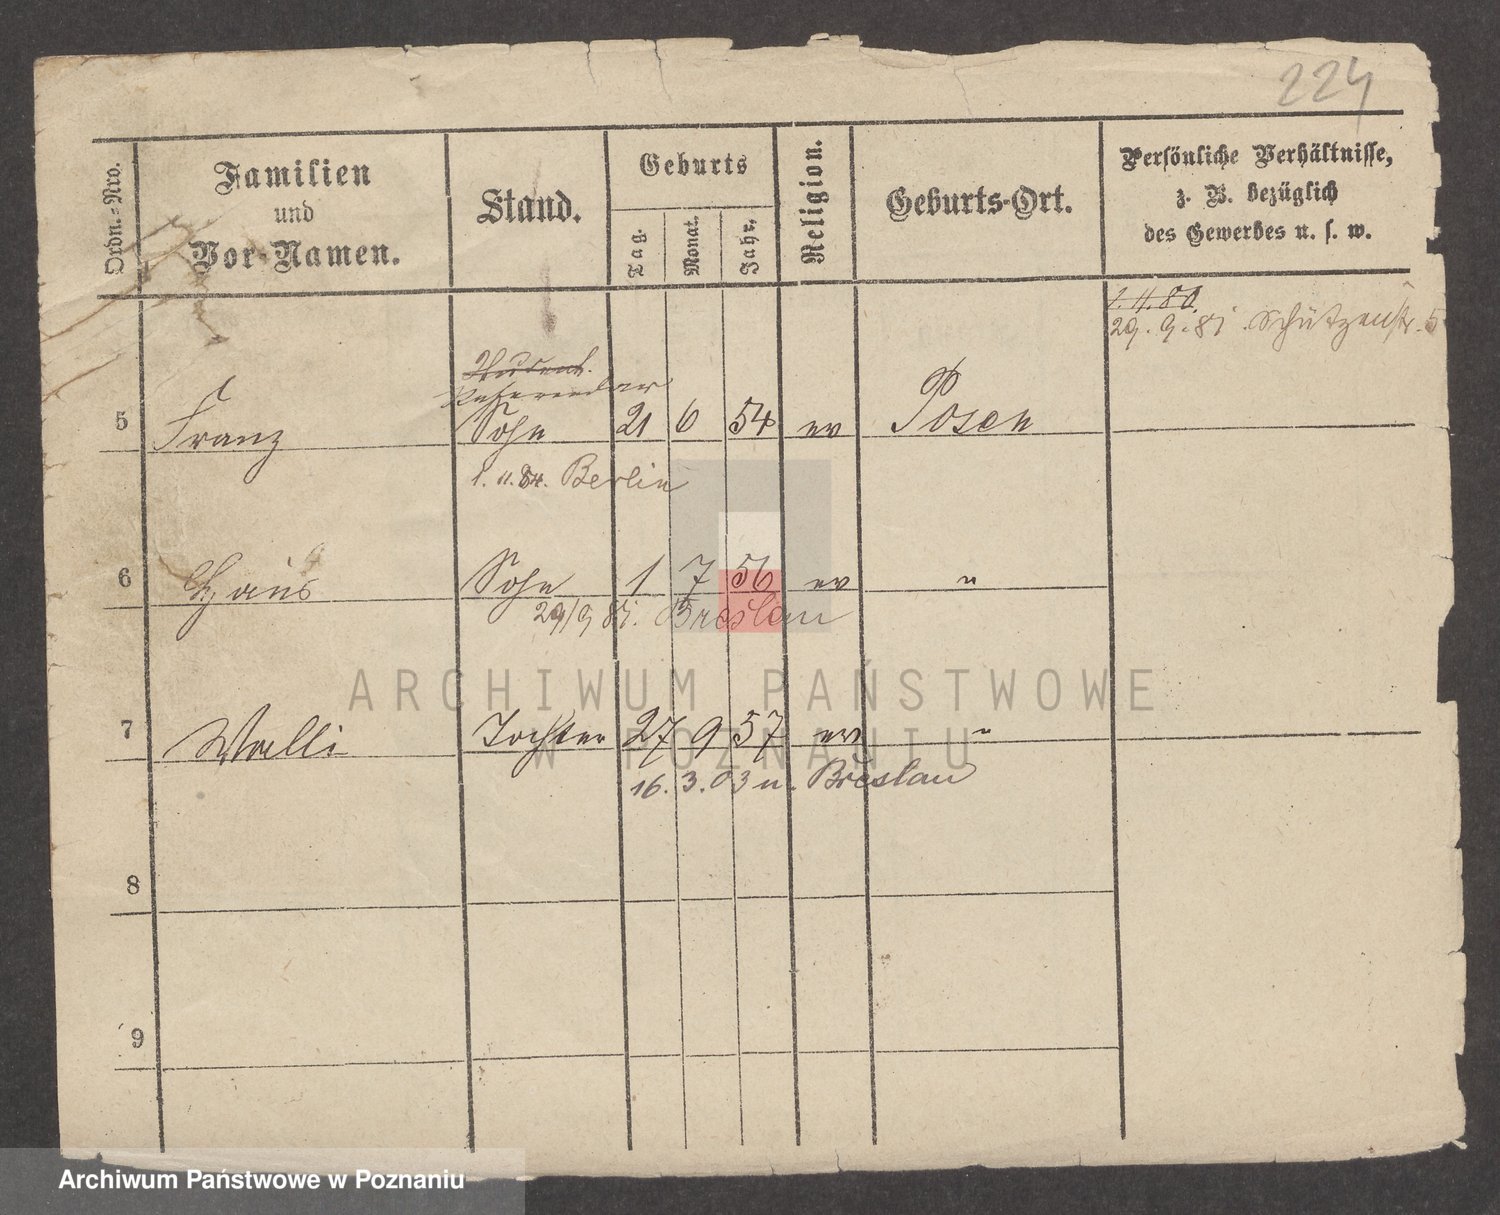 224
Ordn.-Nro.
Familien
und
Vor-Namen.
Stand.
Geburts
Tag.
Monat.
Jahr.
Religion.
Geburts-Ort.
Persönliche Verhältnisse,
z. B. bezüglich
des Gewerbes u. s. w.
1. 11. 80.
29. 9. 81. Schützenstr. 5
Student.
Referendar
5 Franz Sohn 21 6 54 ev Posen
1. 11. 84. Berlin
6 Hans Sohn 1 7 56 ev "
29/9 81. Breslau
7 Walli Tochter 27 9 57 ev "
16. 3. 03 n. Breslau
8
9
ARCHIWUM PAŃSTWOWE
W POZNANIU
Archiwum Państwowe w Poznaniu